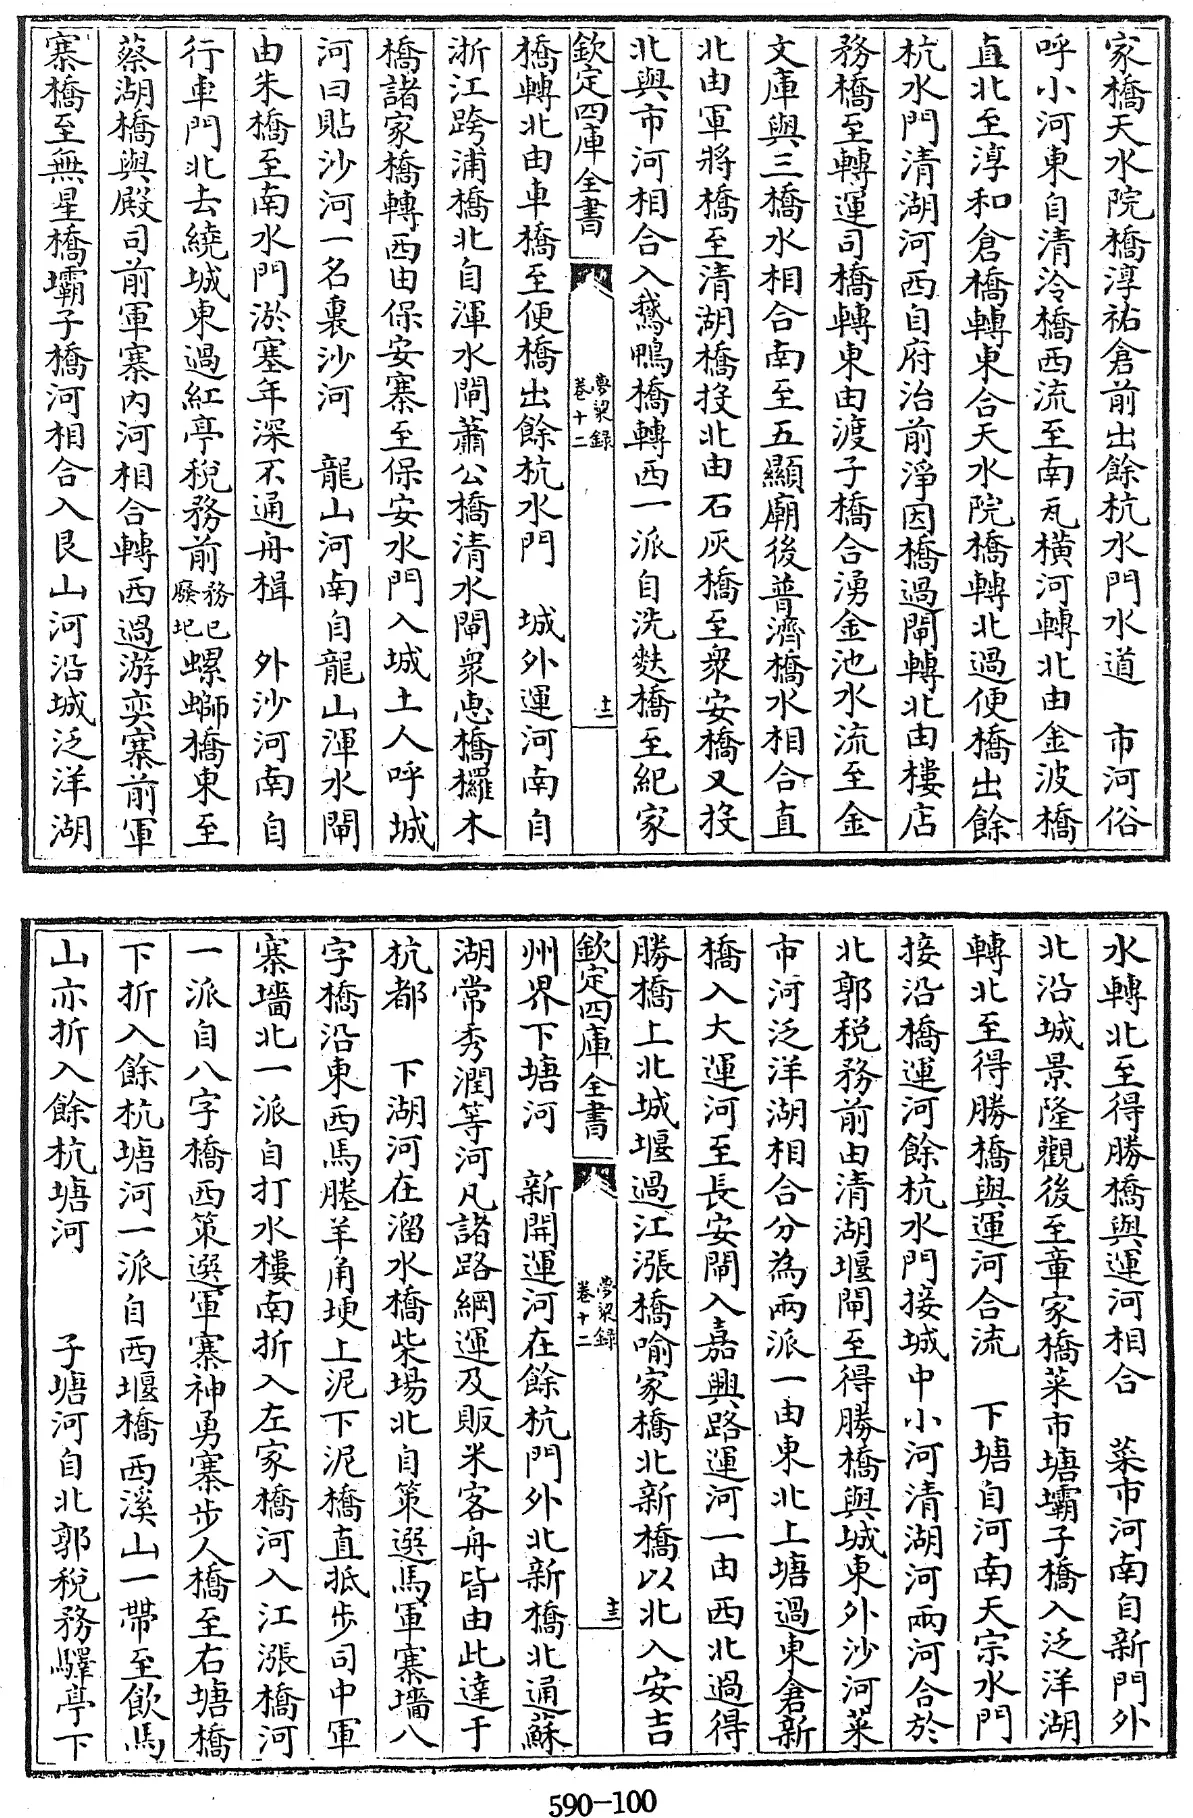 家橋天水院橋淳祐倉前出餘杭水門水道　市河俗
呼小河東自清泠橋西流至南瓦橫河轉北由金波橋
直北至淳和倉橋轉東合天水院橋轉北過便橋出餘
杭水門清湖河西自府治前淨因橋過閘轉北由樓店
務橋至轉運司橋轉東由渡子橋合湧金池水流至金
文庫與三橋水相合南至五顯廟後普濟橋水相合直
北由軍將橋至清湖橋投北由石灰橋至衆安橋又投
北與市河相合入鵝鴨橋轉西一派自洗麩橋至紀家
欽定四庫全書　夢粱錄　卷十二　十二
橋轉北由車橋至便橋出餘杭水門　城外運河南自
浙江跨浦橋北自渾水閘蕭公橋清水閘衆惠橋欏木
橋諸家橋轉西由保安寨至保安水門入城土人呼城
河曰貼沙河一名裏沙河　龍山河南自龍山渾水閘
由朱橋至南水門淤塞年深不通舟楫　外沙河南自
行車門北去繞城東過紅亭稅務前務已廢圯螺螄橋東至
蔡湖橋與殿司前軍寨內河相合轉西過游奕寨前軍
寨橋至無星橋壩子橋河相合入艮山河沿城泛洋湖
水轉北至得勝橋與運河相合　菜市河南自新門外
北沿城景隆觀後至章家橋菜市塘壩子橋入泛洋湖
轉北至得勝橋與運河合流　下塘自河南天宗水門
接沿橋運河餘杭水門接城中小河清湖河兩河合於
北郭稅務前由清湖堰閘至得勝橋與城東外沙河菜
市河泛洋湖相合分為兩派一由東北上塘過東倉新
橋入大運河至長安閘入嘉興路運河一由西北過得
勝橋上北城堰過江漲橋喻家橋北新橋以北入安吉
欽定四庫全書　夢粱錄　卷十二　十三
州界下塘河　新開運河在餘杭門外北新橋北通蘇
湖常秀潤等河凡諸路綱運及販米客舟皆由此達于
杭都　下湖河在溜水橋柴場北自策選馬軍寨墻八
字橋沿東西馬塍羊角埂上泥下泥橋直抵步司中軍
寨墻北一派自打水樓南折入左家橋河入江漲橋河
一派自八字橋西策選軍寨神勇寨步人橋至右塘橋
下折入餘杭塘河一派自西堰橋西溪山一帶至飲馬
山亦折入餘杭塘河　子塘河自北郭稅務驛亭下
590-100